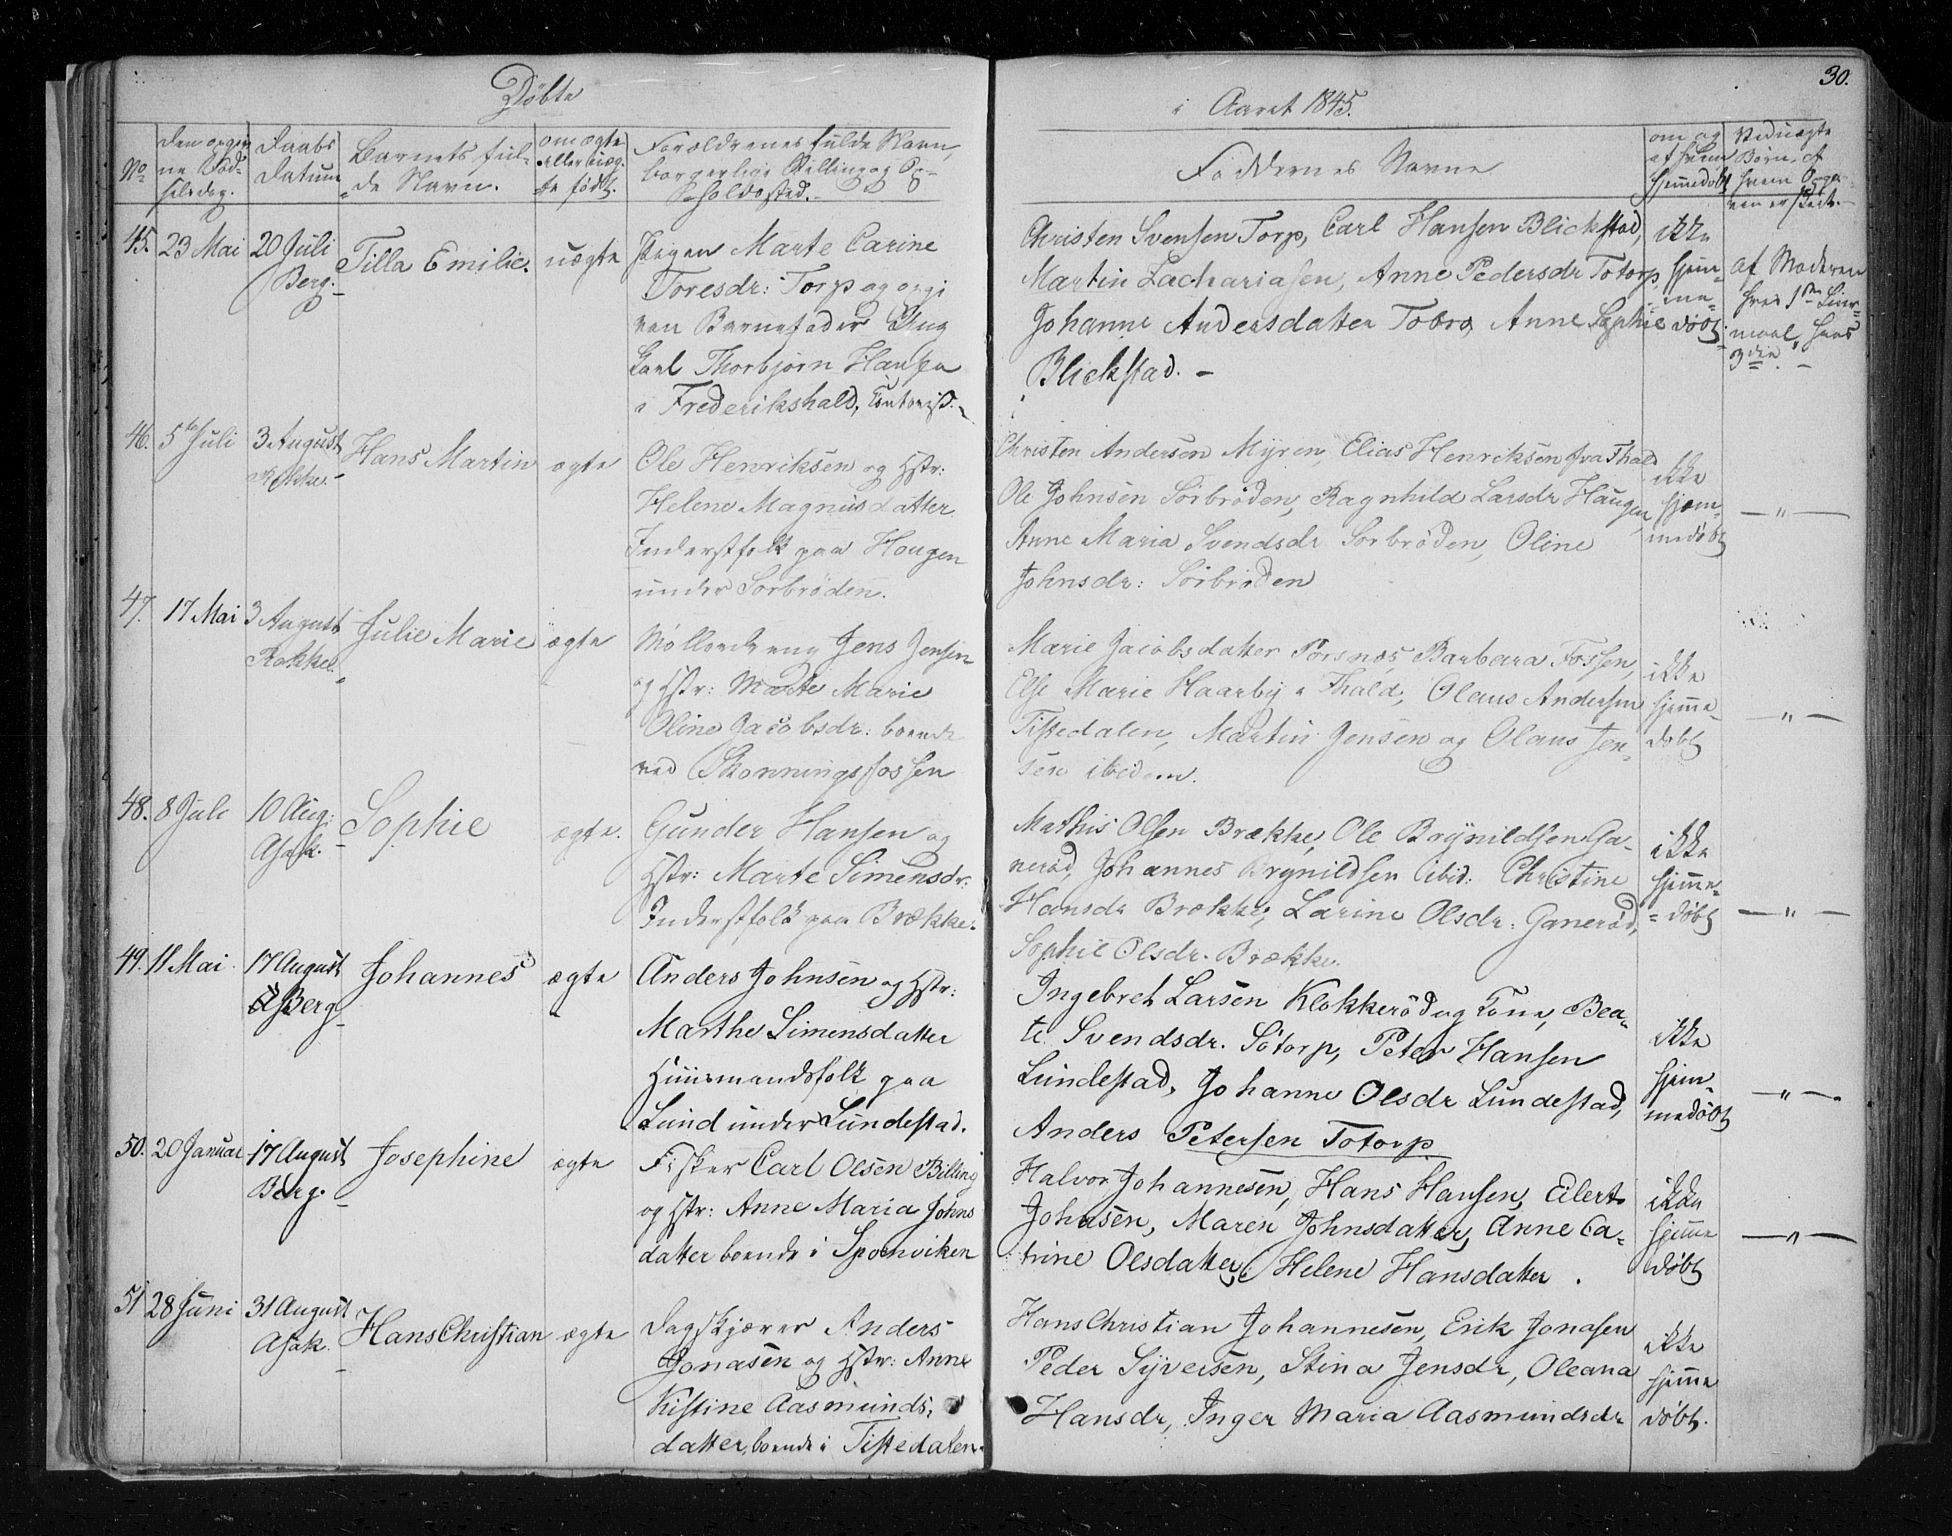 Døbte
i Aaret 1845.
30.
No
den opgiv
ne Fød-
selsdag.
Daabs
Datum
Barnets ful-
de Navn.
om ægte
eller uæg-
te født.
Forældrenes fulde Navn,
borgerlige Stilling og Op-
holdssted.
Faddernes Navne
om og
af hvem
hjemmedøbt
Ved uægte
Børn, af
hvem Opga-
ven er skeet.
45.
23 Mai
20 Juli
Berg.
Tilla Emilie.
uægte
Pigen Marte Carine
Toresdr: Torp og opgi
ven Barnefader Ung
karl Thorbjørn Hansen
i Frederikshald, Contorist.
Christen Svensen Torp, Carl Hansen Blickstad,
Martin Zachariasen, Anne Pedersdr Totorp
Johanne Andersdatter Anne Sophie
Blickstad.
ikke
hjem-
me-
døbt
af Moderen
hvis 1ste Leier-
maal, hans
3die.
46.
5te Juli
3 August
Rokke
Hans Martin
ægte
Ole Henriksen og Hstr:
Helene Magnusdatter
Inderstfolk paa Haugen
under Sørbrøden.
Christen Andersen Myren, Elias Henriksen fra Fhald
Ole Johnsen Sörbröden, Ragnhild Larsdr Haugen
Anne Maria Svendsdr Sorbröden, Oline
Johnsdr: Sörbröden
ikke
hjem-
medøbt
— " —
47.
17 Mai
3 August
Rokke
Julie Marie
ægte
Mølledreng Jens Jensen
og Hstr: Marte Marie
Oline Jacobsdr: boende
ved Skonningsfossen
Marie Jacobsdatter Porsnes, Barbara Fossen,
Else Marie Haarby i Fhald, Olaus Andersen
Tistedalen, Martin Jensen og Olaus Jen-
sen ibidem.
ikke
hjemme-
døbt
— " —
48.
8 Juli
10 Aug:
Asak.
Sophie
ægte.
Gunder Hansen og
Hstr: Marte Simensdr:
Inderstfolk paa Brække.
Mathis Olsen Brække, Ole Brynildsen Ga-
nerød, Johannes Brynildsen ibid: Christine
Hansdr Brække, Larine Olsdr. Ganerød,
Sophie Olsdr. Brække.
ikke
hjemme-
døbt
— " —
49.
11 Mai
17 August
Berg
Johannes
ægte
Anders Johnsen og Hstr:
Marthe Simensdatter
Huusmandsfolk paa
Lund under Lundestad.
Ingebret Larsen Klokkeröd og Kone, Bea-
te Svendsdr. Sötorp, Peter Hansen
Lundestad, Johanne Olsdr Lundestad,
Anders Petersen Totorp
ikke
hjem-
medøbt
— " —
50.
20 Januar
17 August
Berg.
Josephine
ægte
Fisker Carl Olsen Billing
og Hstr: Anne Maria Johns
datter boende i Sponviken
Halvor Johannesen, Hans Hansen, Eilert
Johnsen, Maren Johnsdatter, Anne Ca-
trine Olsdatter, Helene Hansdatter.
ikke
hjemme
døbt
— " —
51
28 Juni
31 August
Asak.
Hans Christian
ægte
Dagskjærer Anders
Jonasen og Hstr: Anne
Kistine Aasmunds-
datter, boende i Tistedalen.
Hans Christian Johannesen, Erik Jonasen
Peder Syversen, Stina Jensdr, Oleana
Hansdr, Inger Maria Aasmundsdr
ikke
hjemme
døbt.